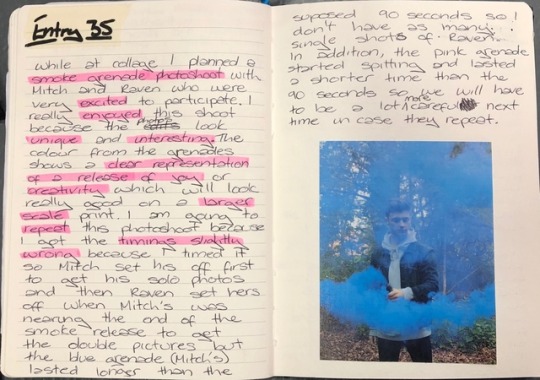 Entry 35
while at college I planned a
smoke grenade photoshoot with
Mitch and Raven who were
very excited to participate. I
really enjoyed this shoot
because the photos look
unique and interesting. The
colour from the grenades
shows a clear representation
of a release of joy or
creativity which will look
really good on a larger
scale print. I am going to
repeat this photoshoot because
I got the timings slightly
wrong because I timed it
so Mitch set his off first
to get his solo photos
and then Raven set hers
off when Mitch's was
nearing the end of the
smoke release to get
the double pictures but
the blue grenade (Mitch's)
lasted longer than the
suposed 90 seconds so I
don't have as many
single shots of Raven.
In addition, the pink grenade
started spitting and lasted
a shorter time than the
90 seconds so we will have
to be a lot more careful next
time in case they repeat.